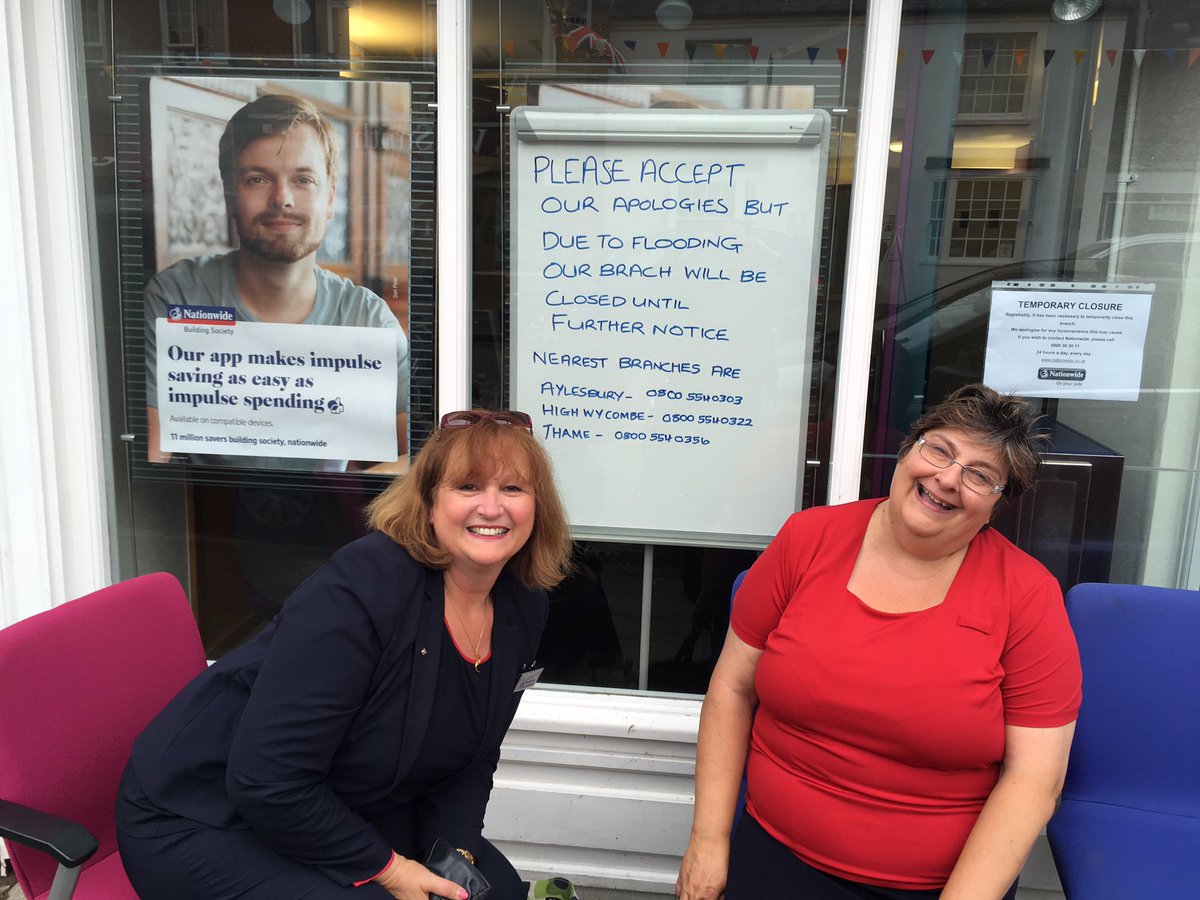 Nationwide
Building Society
Our app makes impulse
saving as easy as
impulse spending
Available on compatible devices.
11 million savers building society, nationwide
PLEASE ACCEPT
OUR APOLOGIES BUT
DUE TO FLOODING
OUR BRACH WILL BE
CLOSED UNTIL
FURTHER NOTICE
NEAREST BRANCHES ARE
AYLESBURY- 0800 5540303
HIGH WYCOMBE- 0800 5540322
THAME- 0800 5540356
TEMPORARY CLOSURE
Regrettably, it has been necessary to temporarily close this
branch.
We apologise for any inconvenience this may cause.
If you wish to contact Nationwide, please call
0800 30 20 11
24 hours a day, every day.
www.nationwide.co.uk
Nationwide
On your side